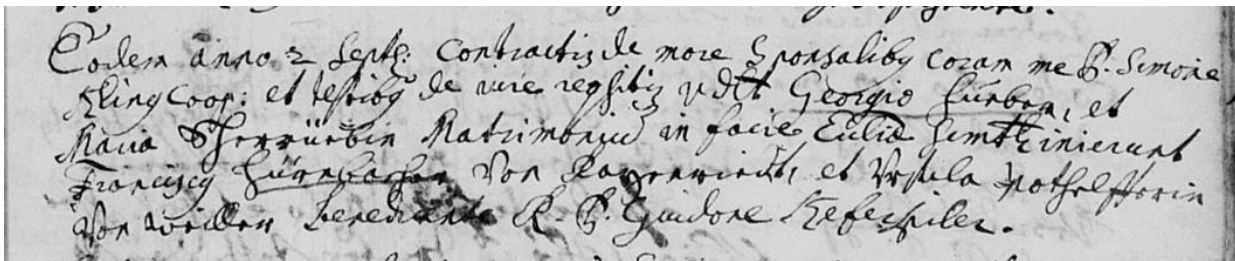 Eodem anno 2 Septb: contractis de more Sponsaliby coram me P. Simone
Kling Coop: et testiby de iure reqsitis vdlt Georgio Hueber, et
Maria Matrimoniu in facie Eccliæ inierunt
Franciscy Hürnbacher von et Ursula Nothelfferin
von Weiller benedicente R. P. Guidone